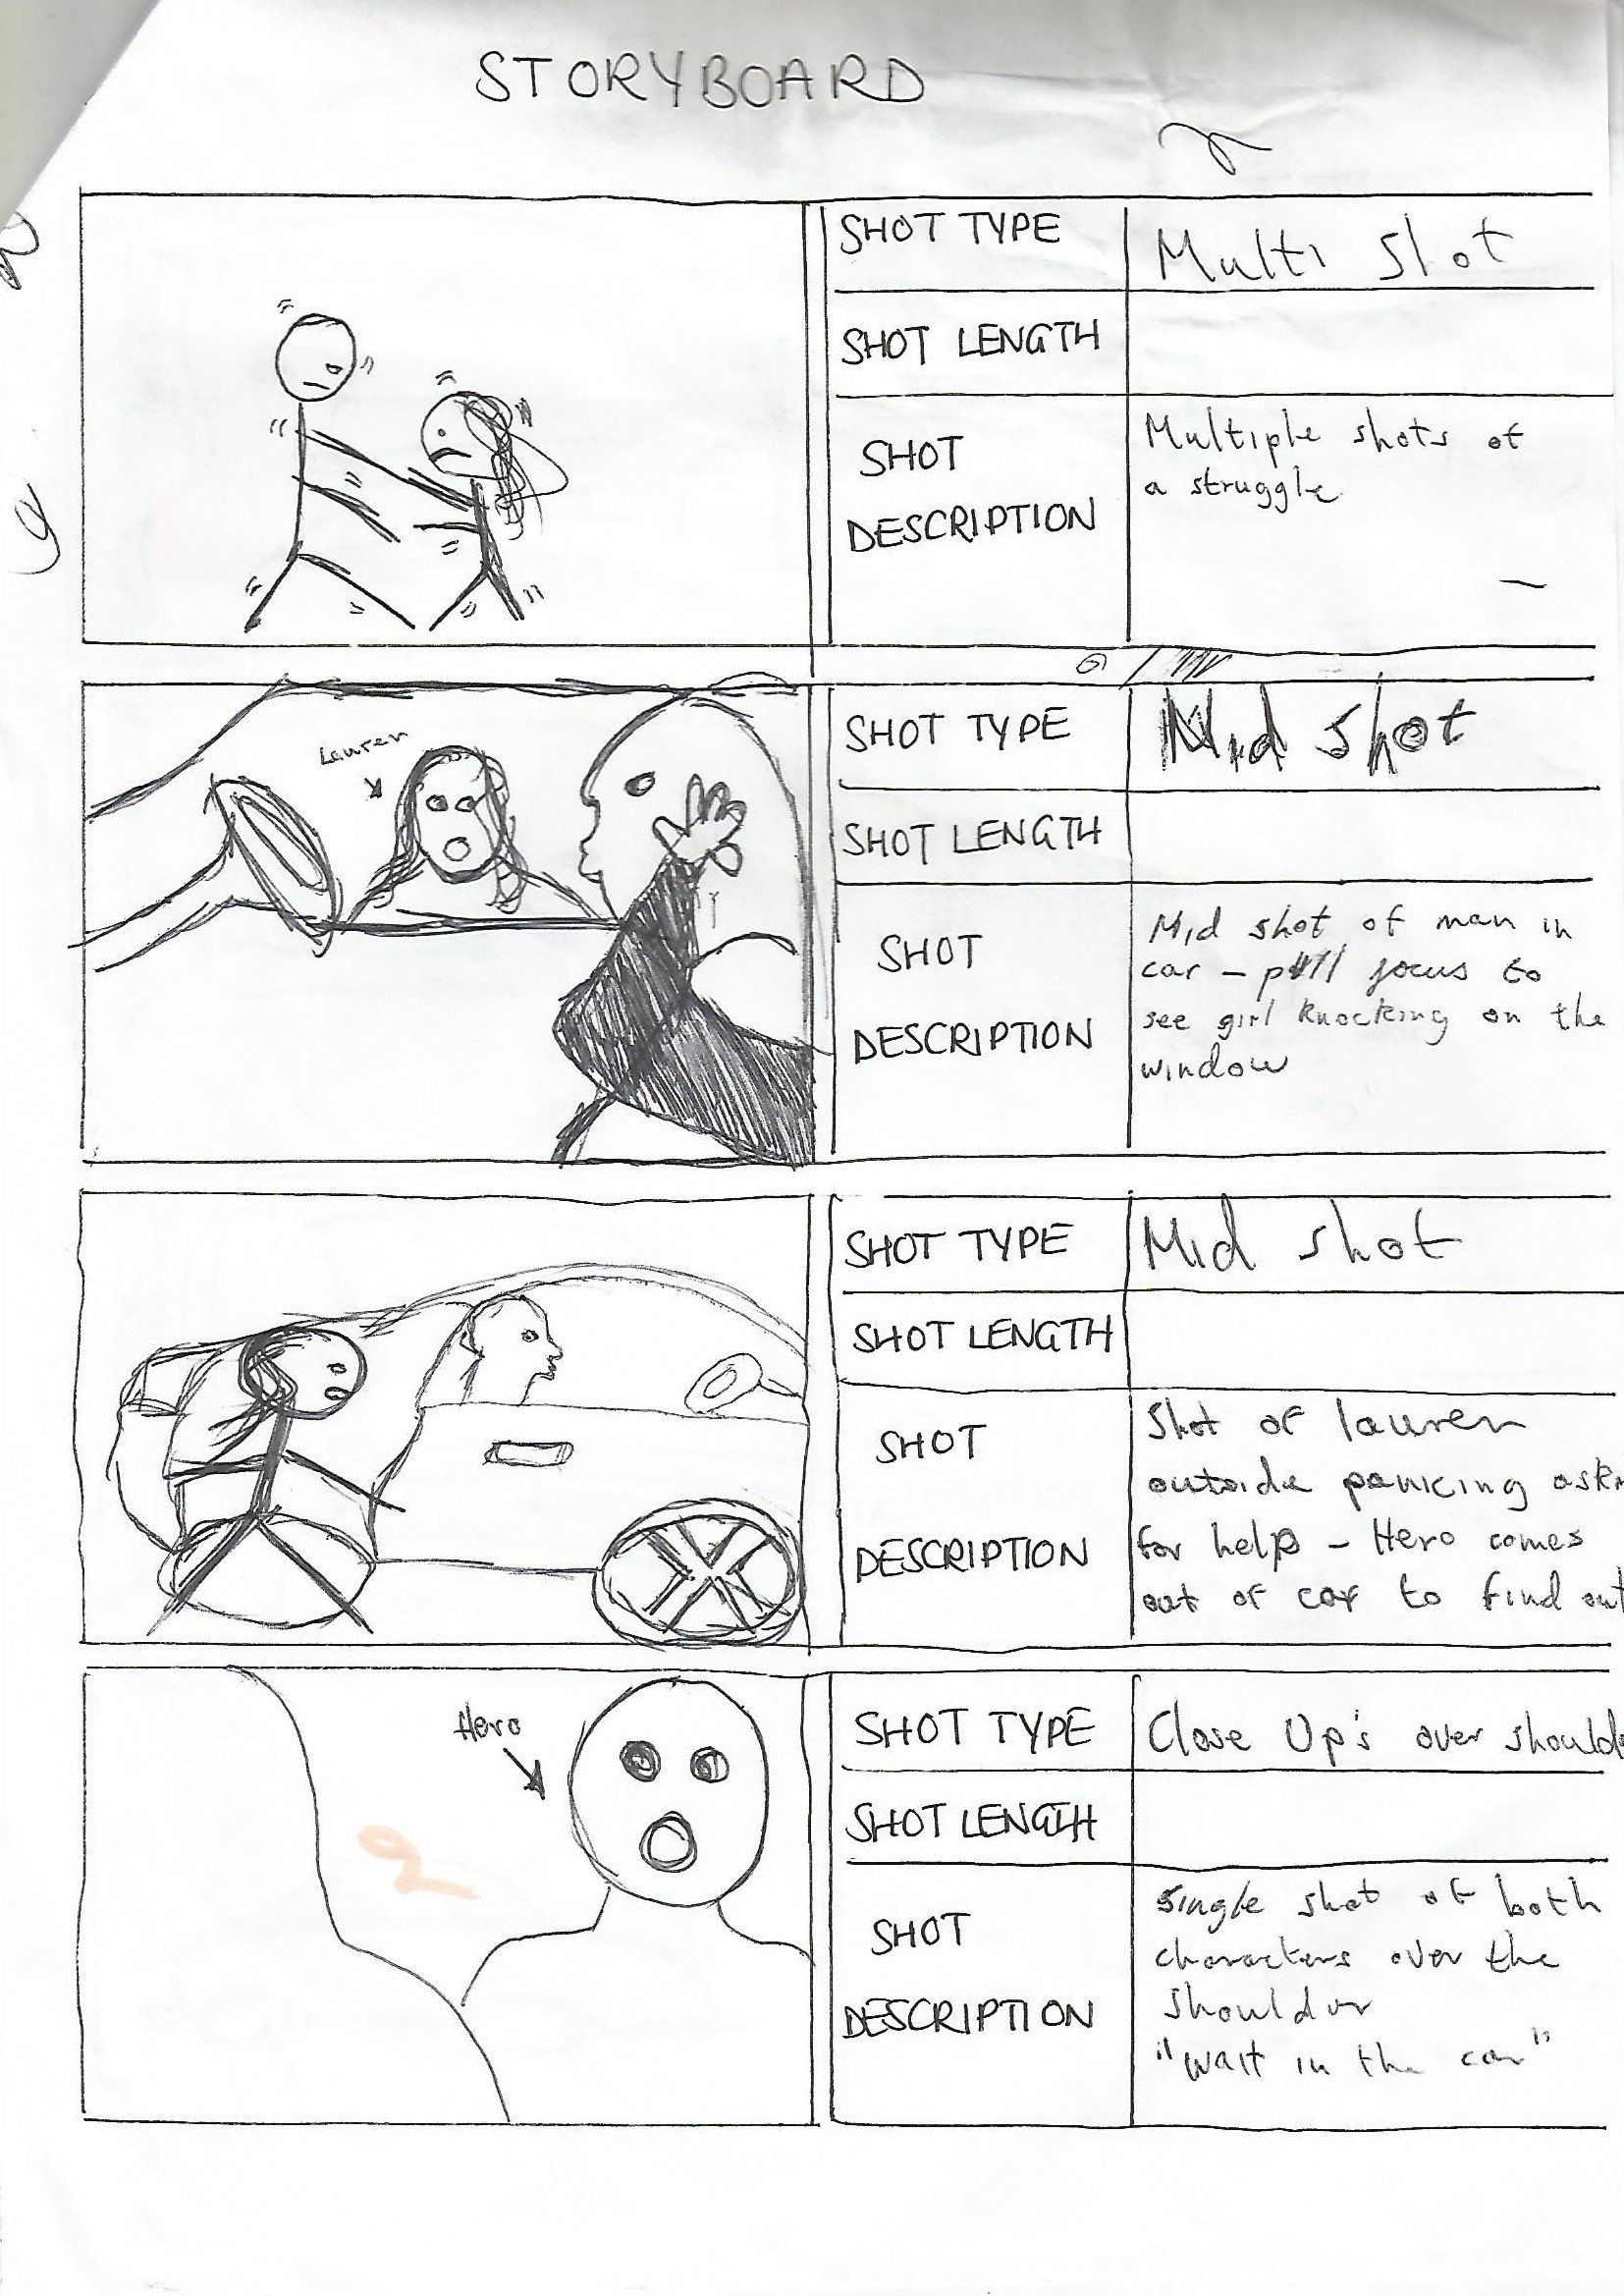 STORYBOARD
SHOT TYPE
Multi Shot
SHOT LENGTH
SHOT
DESCRIPTION
Multiple shots of
a struggle
Lauren
SHOT TYPE
Mid shot
SHOT LENGTH
SHOT
DESCRIPTION
Mid shot of man in
car - pull focus to
see girl knocking on the
window
SHOT TYPE
Mid shot
SHOT LENGTH
SHOT
DESCRIPTION
Shot of lauren
outside panicing askn
for help - Hero comes
out of car to find out
Hero
SHOT TYPE
Close Up's over should
SHOT LENGTH
SHOT
DESCRIPTION
single shot of both
characters over the
shoulder
"wait in the car"